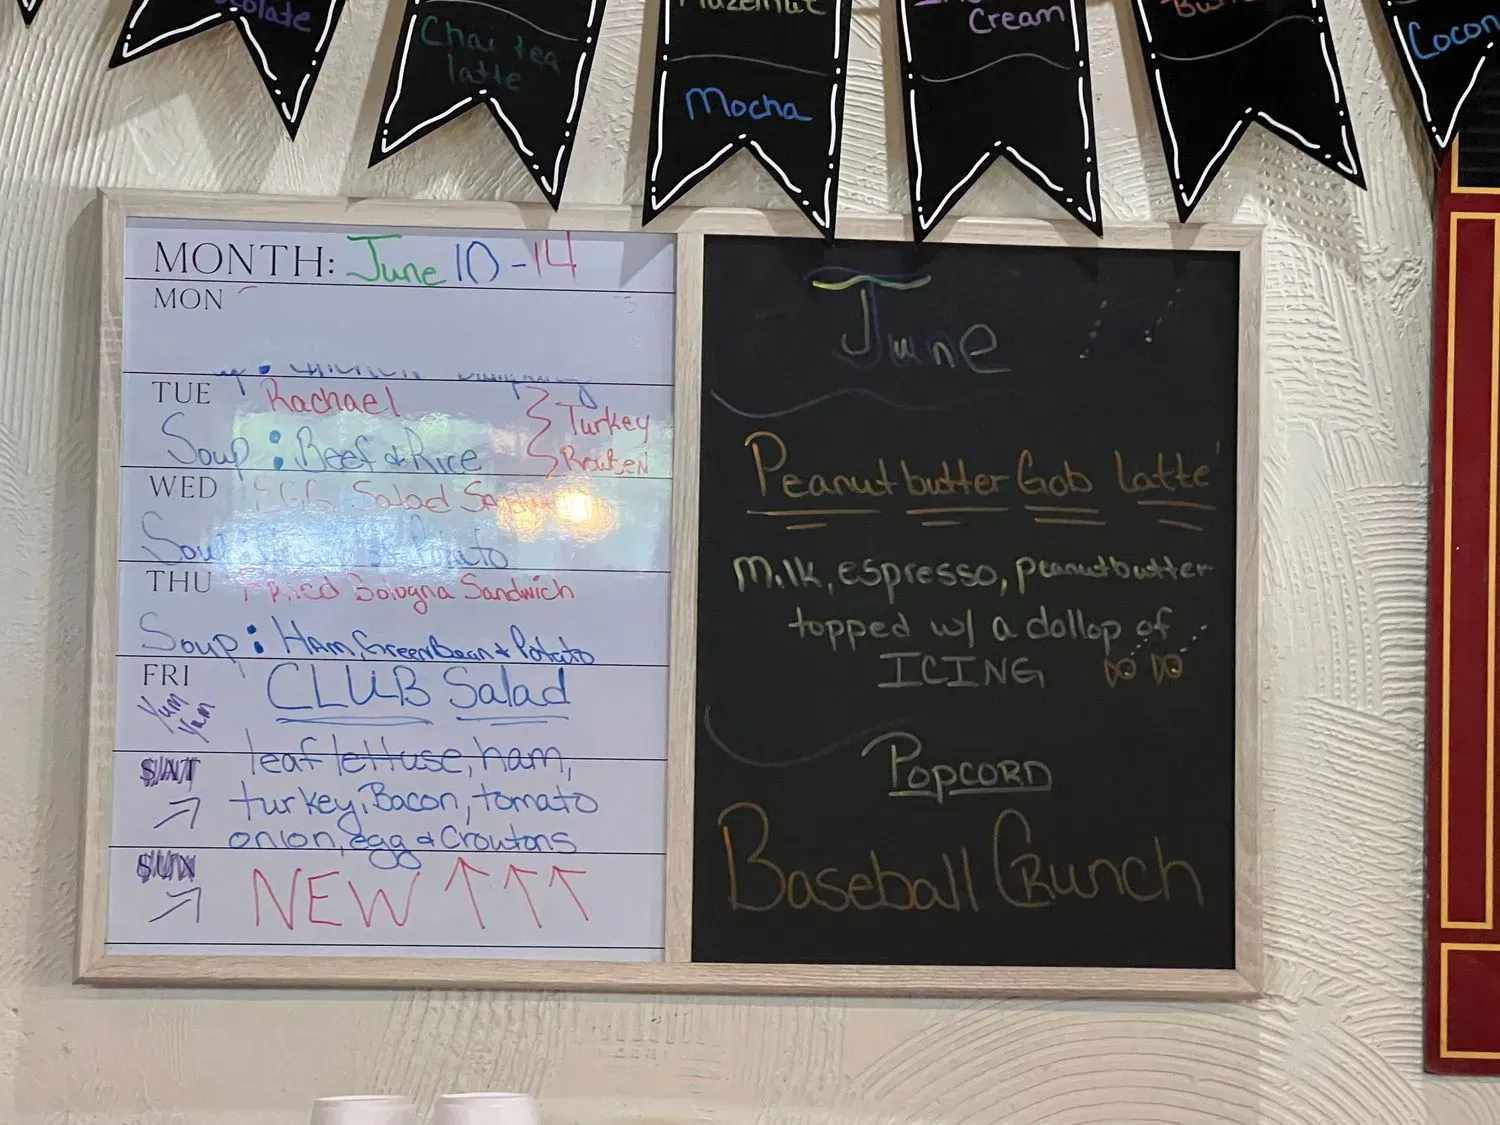 Chai tea
latte
Mocha
Cream
MONTH: June 10-14
MON
TUE Rachael
Turkey
Soup: Beef & Rice
WED EGG Salad
Potato
THU Fried Bologna Sandwich
Soup: Ham, Green Bean & Potato
FRI CLUB Salad
Yum
Yum
leaf lettuse, ham,
SAT
turkey, Bacon, tomato
onion, egg & Croutons
SUN
NEW ↑↑↑
June
Peanut butter Gob latte
Milk, espresso, peanutbutter
topped w/ a dollop of
ICING
POPCORN
Baseball Crunch